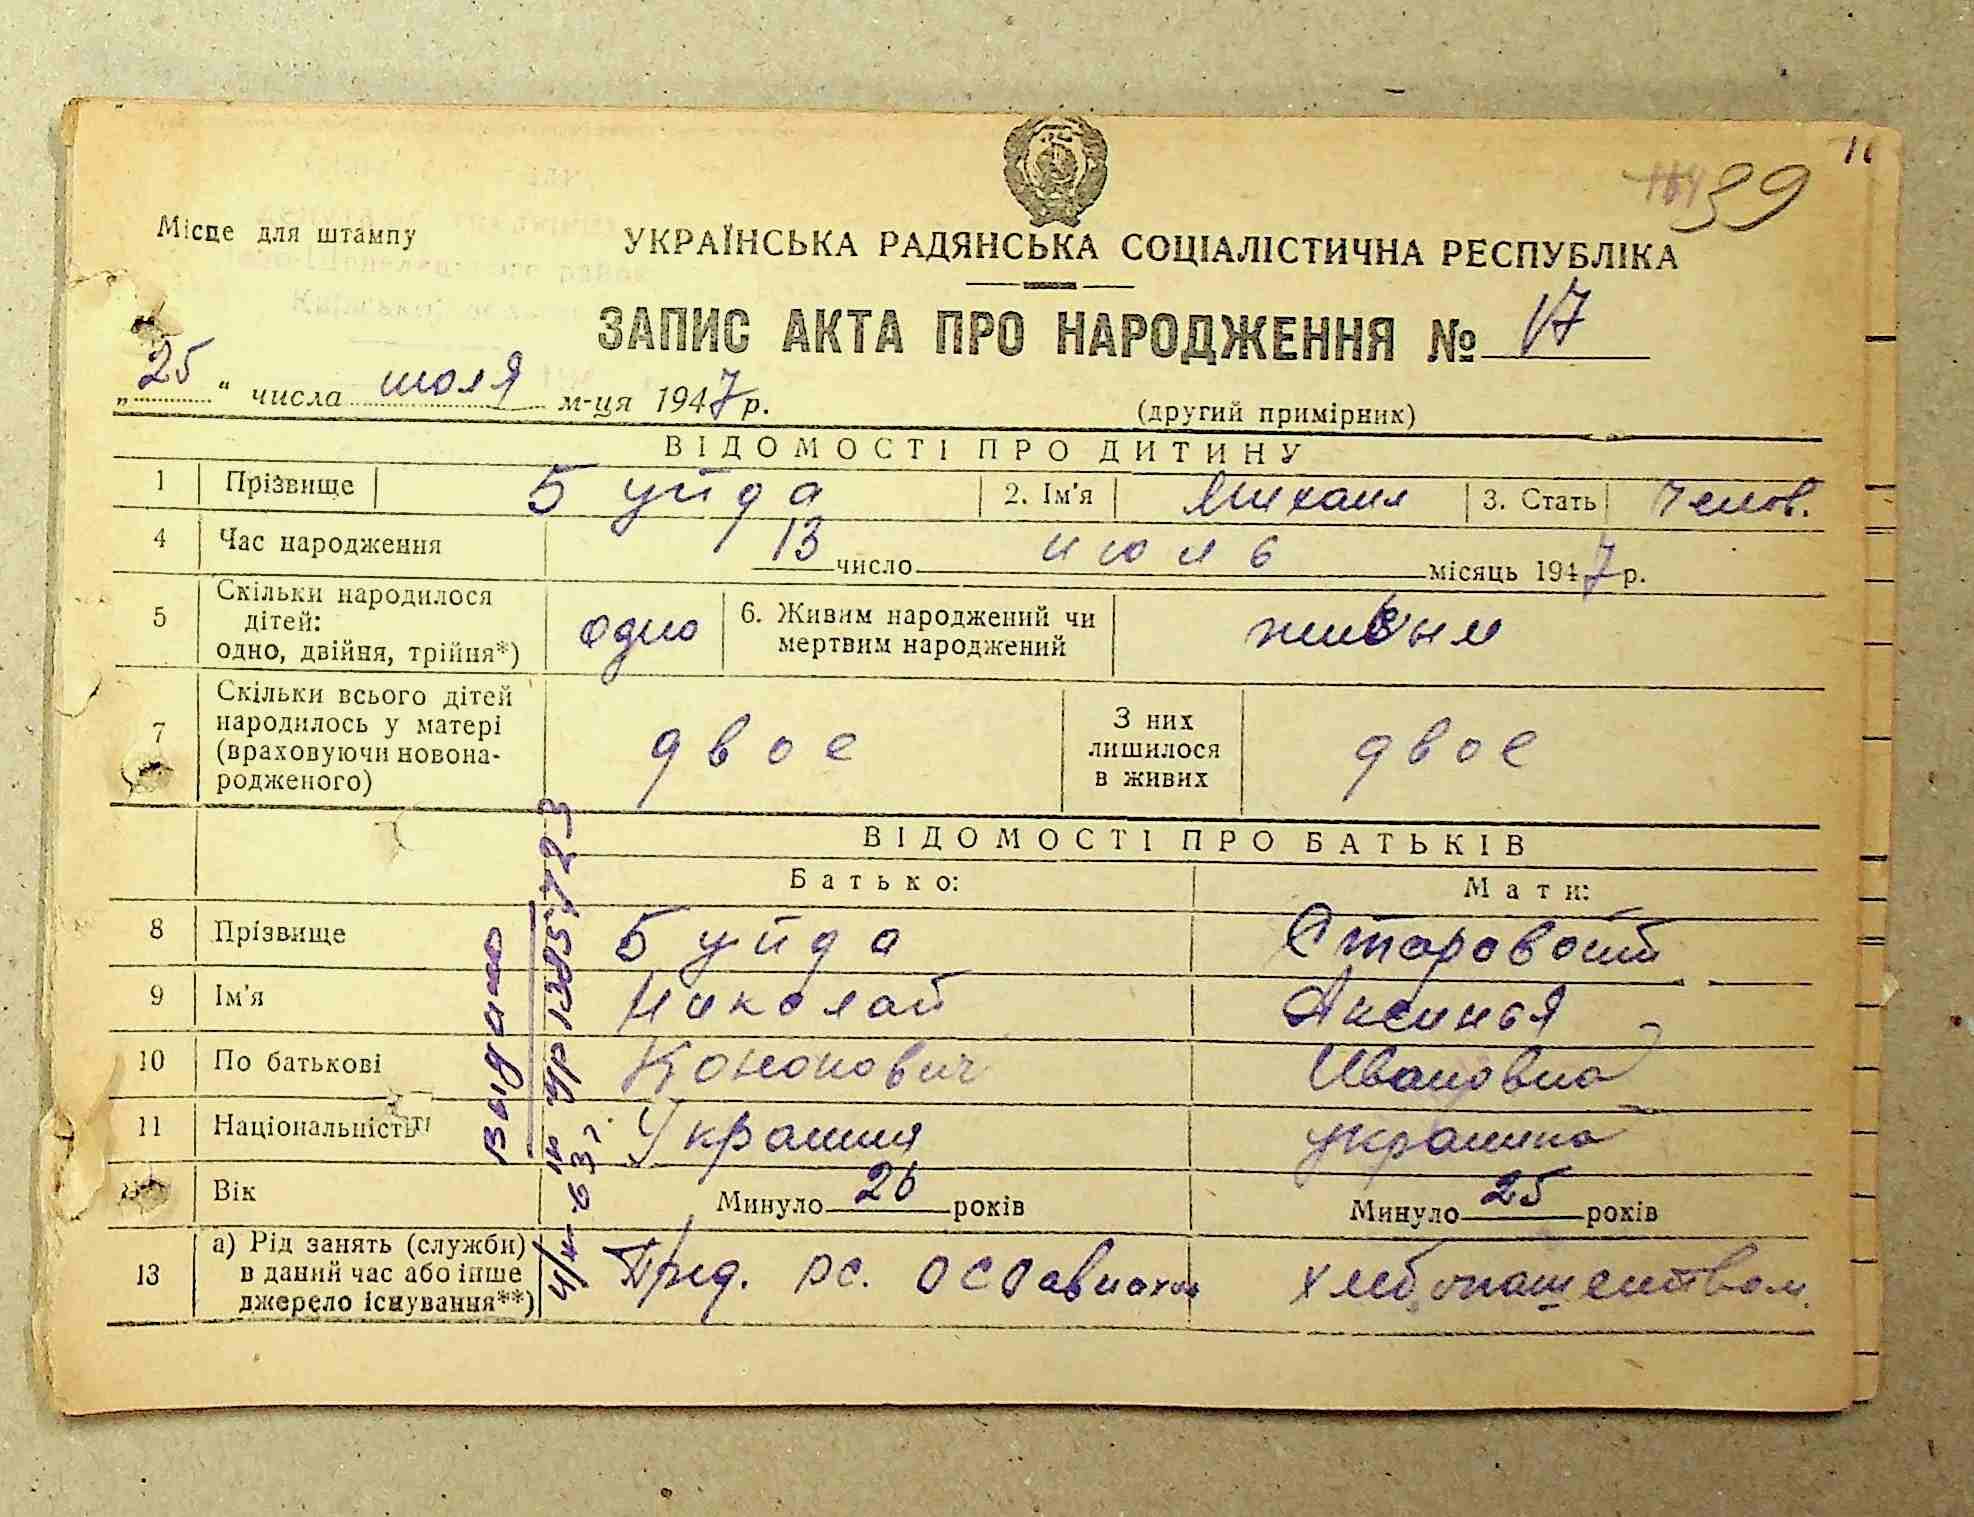 39
Місце для штампу
УКРАЇНСЬКА РАДЯНСЬКА СОЦІАЛІСТИЧНА РЕСПУБЛІКА
ЗАПИС АКТА ПРО НАРОДЖЕННЯ № 17
„25“ числа июля м-ця 1947 р.
(другий примірник)
ВІДОМОСТІ ПРО ДИТИНУ
1 Прізвище Буйда 2. Ім'я Михаил 3. Стать Челов.
4 Час народження 13 число июль місяць 1947 р.
5 Скільки народилося дітей: одно, двійня, трійня*) одно 6. Живим народжений чи мертвим народжений живым
7 Скільки всього дітей народилось у матері (враховуючи новонародженого) двое З них лишилося в живих двое
ВІДОМОСТІ ПРО БАТЬКІВ
Батько: Мати:
8 Прізвище Буйда Старовойт
9 Ім'я Николай Аксинья
10 По батькові Кононович Ивановна
11 Національність Украиния украинка
Вік Минуло 26 років Минуло 25 років
13 а) Рід занять (служби) в даний час або інше джерело існування**) Пред. рс. осоавиахим хлебопашеством